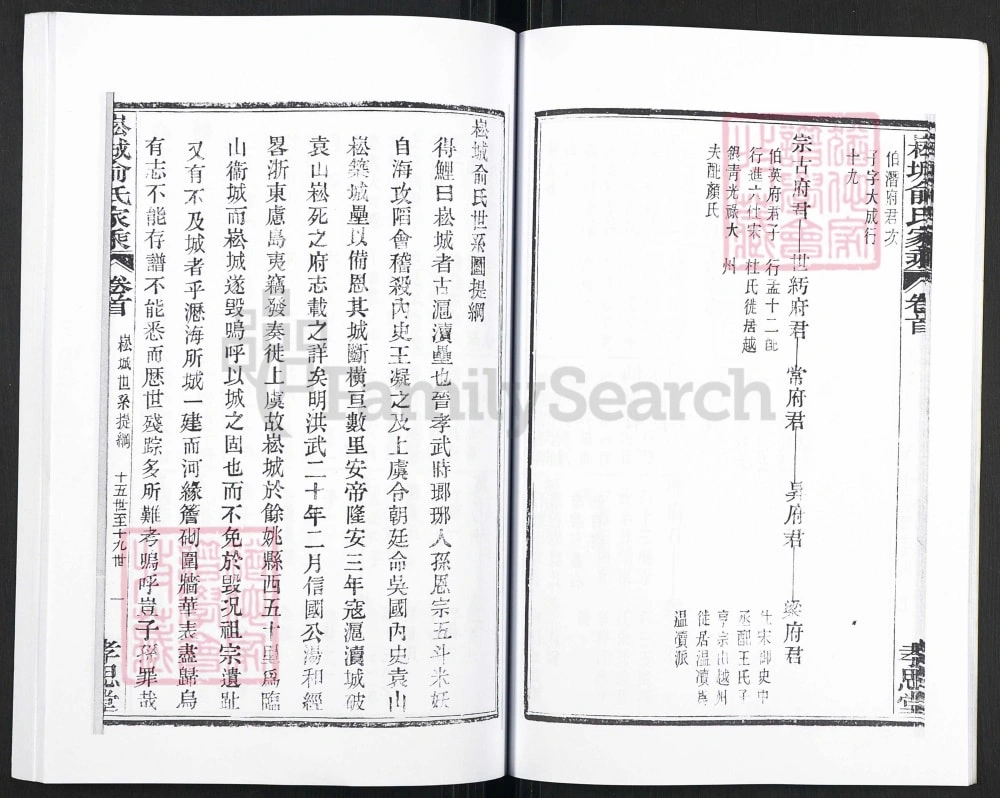 崧城俞氏家乘 卷首
孝思堂
伯潛府君次
子字大成行
十九
宗古府君 世紡府君 常府君 昇府君 梁府君
伯英府君子
行進六仕宋
銀青光祿大
夫配顏氏
行孟十二配
杜氏徙居越
州
仕宋御史中
丞配王氏子
亨宗由越州
徙居溫瀆為
溫瀆派
崧城俞氏世系圖提綱
得鯉曰崧城者古滬瀆壘也晉孝武時瑯琊人孫恩宗五斗米妖
自海攻陷會稽殺內史王凝之及上虞令朝廷命吳國內史袁山
崧築城壘以備恩其城斷橫亘數里安帝隆安三年寇滬瀆城破
袁山崧死之府志載之詳矣明洪武二十年二月信國公湯和經
畧浙東慮島夷竊發奏徙上虞故崧城於餘姚縣西五十里爲臨
山衞城而崧城遂毀嗚呼以城之固也而不免於毀况祖宗遺趾
又有不及城者乎瀝海所城一建而河緣簷砌圍牆華表盡歸烏
有志不能存譜不能悉而歷世殘踪多所難考嗚呼豈子孫罪哉
崧城俞氏家乘 卷首 崧城世系提綱 十五世至十九世 一
孝思堂
FamilySearch